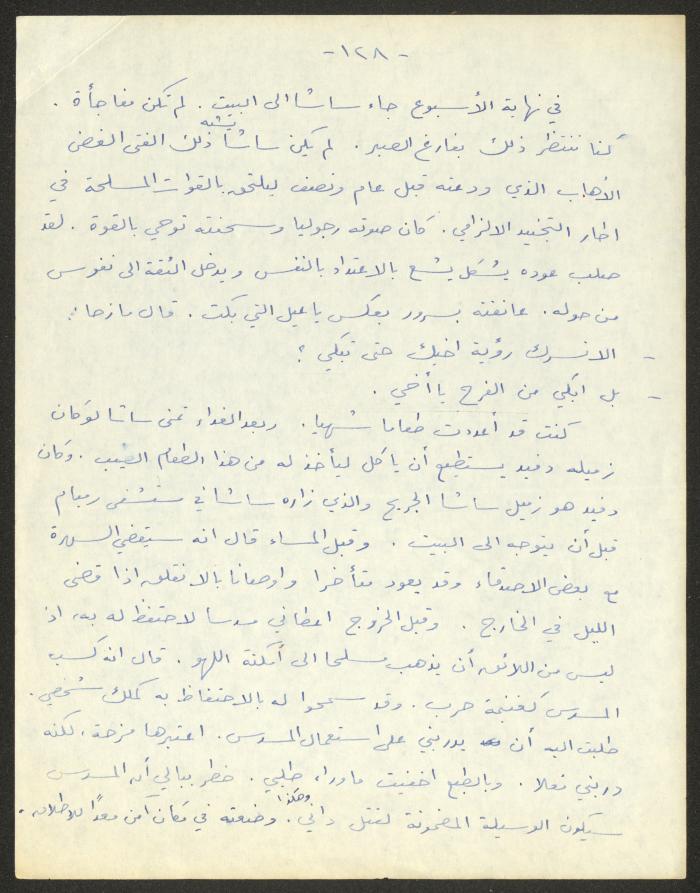 - ١٢٨ -
في نهاية الأسبوع جاء ساشا الى البيت . لم تكن مفاجأة .
كنا ننتظر ذلك بفارغ الصبر . لم يكن ساشا يشبه ذلك الفتى الغض
الأهاب الذي ودعته قبل عام ونصف ليلتحق بالقوات المسلحة في
اطار التجنيد الالزامي . كان صوته رجوليا وسحنته توحي بالقوة . لقد
صلب عوده بشكل يشع بالاعتداد بالنفس ويدخل الثقة الى نفوس
من حوله . عانقته بسرور بعكس ياعيل التي بكت . قال مازحا :
- الا تسرك رؤية اخيك حتى تبكي ؟
- بل ابكي من الفرح يا أخي .
كنت قد أعددت طعاما شهيا . وبعد الغداء تمنى ساشا لو كان
زميله دفيد يستطيع أن يأكل ليأخذ له من هذا الطعام الطيب . وكان
دفيد هو زميل ساشا الجريح والذي زاره ساشا في مستشفى رمبام
قبل أن يتوجه الى البيت . وقبل المساء قال انه سيقضي السهرة
مع بعض الاصدقاء وقد يعود متأخرا وأوصانا بالا نقلق اذا قضى
الليل في الخارج . وقبل الخروج اعطاني مسدسا لاحتفظ له به، اذ
ليس من اللائق أن يذهب مسلحا الى أمكنة اللهو . قال انه كسب
المسدس كغنيمة حرب . وقد سمحوا له بالاحتفاظ به كملك شخصي .
طلبت اليه أن يدربني على استعمال المسدس . اعتبرها مزحة، لكنه
دربني فعلا . وبالطبع اخفيت ما وراء طلبي . خطر ببالي أن المسدس
سيكون الوسيلة المضمونة لقتل داني . وهكذا وضعته في مكان آمن معدًا للاطلاق .